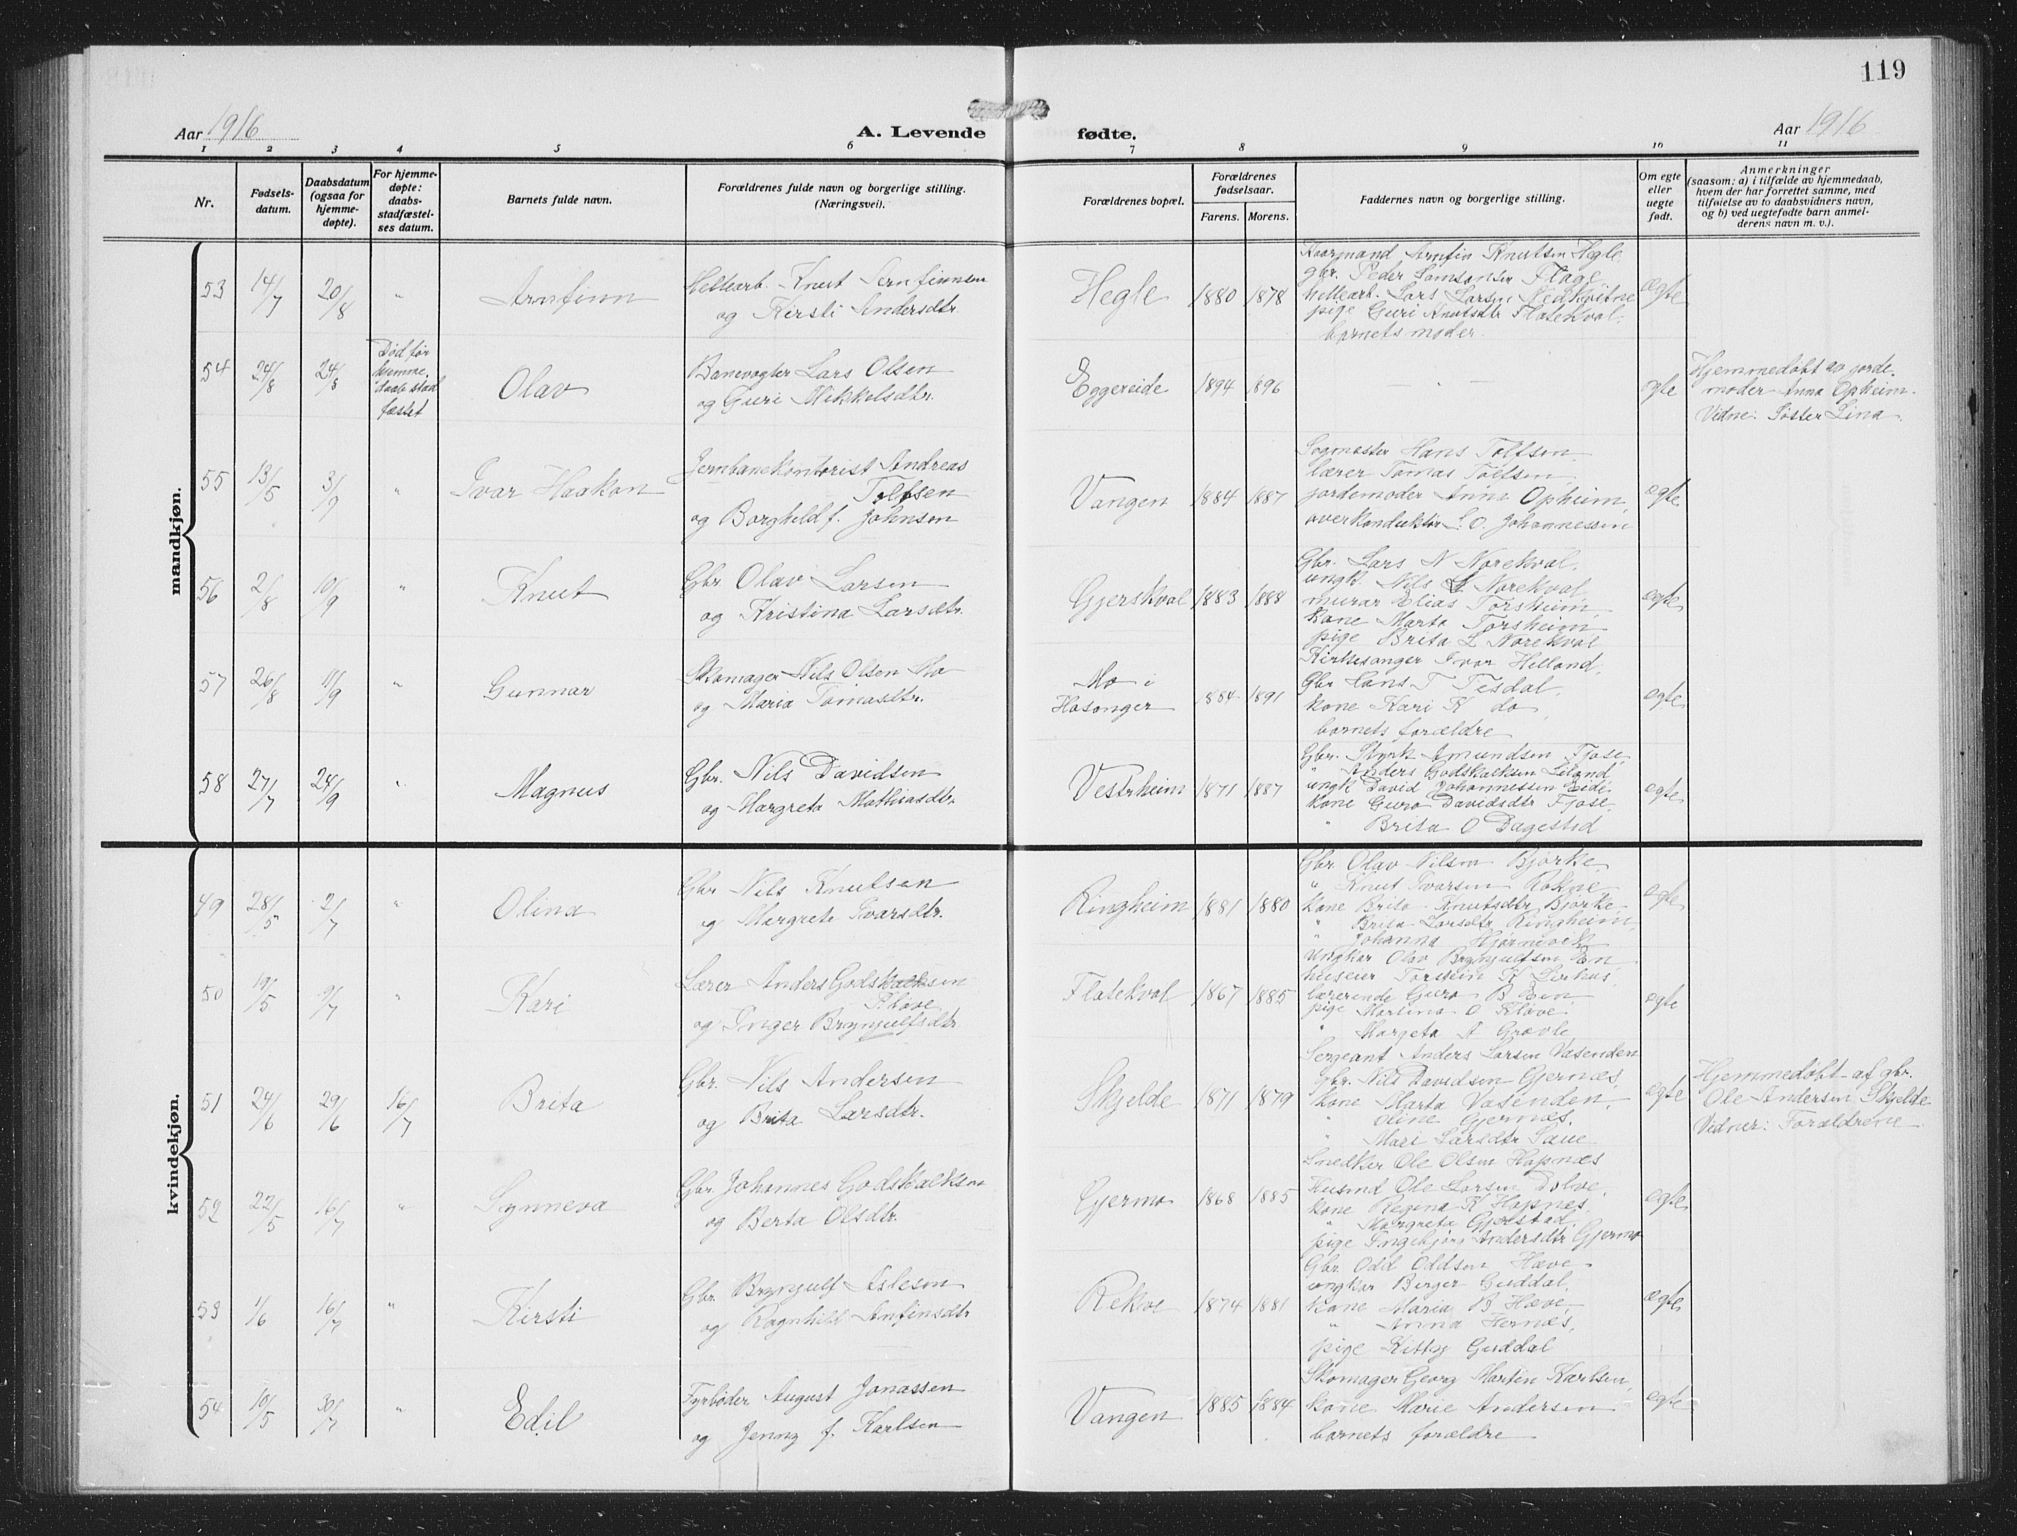 119
Aar 1916
A. Levende fødte.
Aar 1916
1 2 3 4 5 6 7 8 9 10 11
Nr.
Fødsels-
datum.
Daabsdatum
(ogsaa for
hjemme-
døpte).
For hjemme-
døpte:
daabs-
stadfæstel-
ses datum.
Barnets fulde navn.
Forældrenes fulde navn og borgerlige stilling.
(Næringsvei).
Forældrenes bopæl.
Forældrenes
fødselsaar.
Farens. Morens.
Faddernes navn og borgerlige stilling.
Om egte
eller
uegte
født.
Anmerkninger
(saasom: a) i tilfælde av hjemmedaab,
hvem der har forrettet samme, med
tilføielse av to daabsvidners navn,
og b) ved uegtefødte barn anmel-
derens navn m. v.).
mandkjøn.
53 14/7 20/8 " Arnfinn
Hellearb. Knut Arnfinnsen
og Kirsti Andersdtr.
Hegle 1880 1878
Kaarmand Arnfin Knutsen Hegle
gbr. Peder Samsonsen Flage
hellearb. Lars Larsen Nedkvitne
pige Guri Knutsdtr Flatekval.
barnets moder.
egte
54 24/8 24/8
Død før
hjemme-
daab stad
fæstet
Olav
Banevogter Lars Olsen
og Guri Mikkelsdtr.
Eggereide 1894 1896
egte
Hjemmedøbt av jorde-
moder Anna Opheim.
Vidne: Søster Lina
55 13/5 3/9 " Ivar Haakon
Jernbanekontorist Andreas
Tolfsen
og Borghild f. Johnsen
Vangen 1884 1887
Sogmester Hans Tolfsen
lærer Tomas Tolfsen
jordemoder Anna Opheim,
overkonduktør L. O. Johannessen
egte
56 2/8 10/9 " Knut
Gbr Olav Larsen
og Kristina Larsdtr.
Gjerskval 1883 1888
Gbr. Lars N Norekval.
ungk. Nils L Norekval.
murar Elias Torsheim
kone Marta Torsheim
pige Brita L Norekval
egte
57 26/8 11/9 " Gunnar
Skomager Nils Olsen Mo
og Maria Tomasdtr.
Mo i
Hosanger
1884 1891
Kirkesanger Ivar Helland.
Gbr Hans T Tesdal.
kone Kari K do
barnets forældre
egte
58 27/7 24/9 " Magnus
Gbr. Nils Davidsen
og Margreta Mathiasdtr.
Vestrheim 1871 1887
Gbr. Styrk Amundsen Fjose
" Anders Godskalksen Liland
ungk David Johannessen Eide
kone Guro Davidsdtr Fjose
" Brita O Dagestad
egte
kvindekjøn.
49 28/5 2/7 " Olina
Gbr Nils Knutsen
og Margrete Ivarsdtr.
Ringheim 1881 1880
Gbr Olav Nilsen Bjørke
" Knut Ivarsen Rokne
kone Brita Knutsdtr Bjørke
" Brita Larsdtr Ringheim
" Johanna
egte
50 19/5 9/7 " Kari
Lærer Anders Godskalksen
Kløve
og Inger Brynjulfsdtr
Flatekval 1867 1885
Ungkar Olav Brynjulfsen En
Torstein K Lirhus
lærerinde Guro B En
pige Martina O Kløve
" Margeta A Grovle
egte
51 24/6 29/6 16/7 Brita
Gbr. Nils Andersen
og Brita Larsdtr.
Skjelde 1871 1879
Sergeant Anders Larsen Vasenden
Gbr. Nils Davidsen Gjernæs
kone Marta Vasenden
" Gjernæs.
" Mari Larsdtr Saue
egte
Hjemmedøbt af gbr.
Ole Andersen Skjelde
Vidner: Forældrene
52 22/5 16/7 " Synneva
Gbr Johannes Godskalksen
og Berta Olsdtr.
Gjermo 1868 1885
Snedker Ole Olsen Hapnæs
Husmd Ole Larsen Dolve
kone Regina K Hapnæs
" Margreta Gjelstad
pige Ingebjørg Andersdtr Gjermo
egte
53 1/6 16/7 " Kirsti
Gbr. Brynjulf Asleson
og Ragnhild Anfinsdtr
Rekve 1874 1881
Gbr Odd Oddsen Hæve
ungkar Berger Guddal
kone Maria B Hæve
" Anna Hernæs
pige Kitty Guddal
egte
54 10/5 30/7 " Edil
Fyrbøder August Jonassen
og Jenny f. Karlsen
Vangen 1885 1884
Skomager Georg Martin Karlsen
kone Marie Andersen
barnets forældre
egte